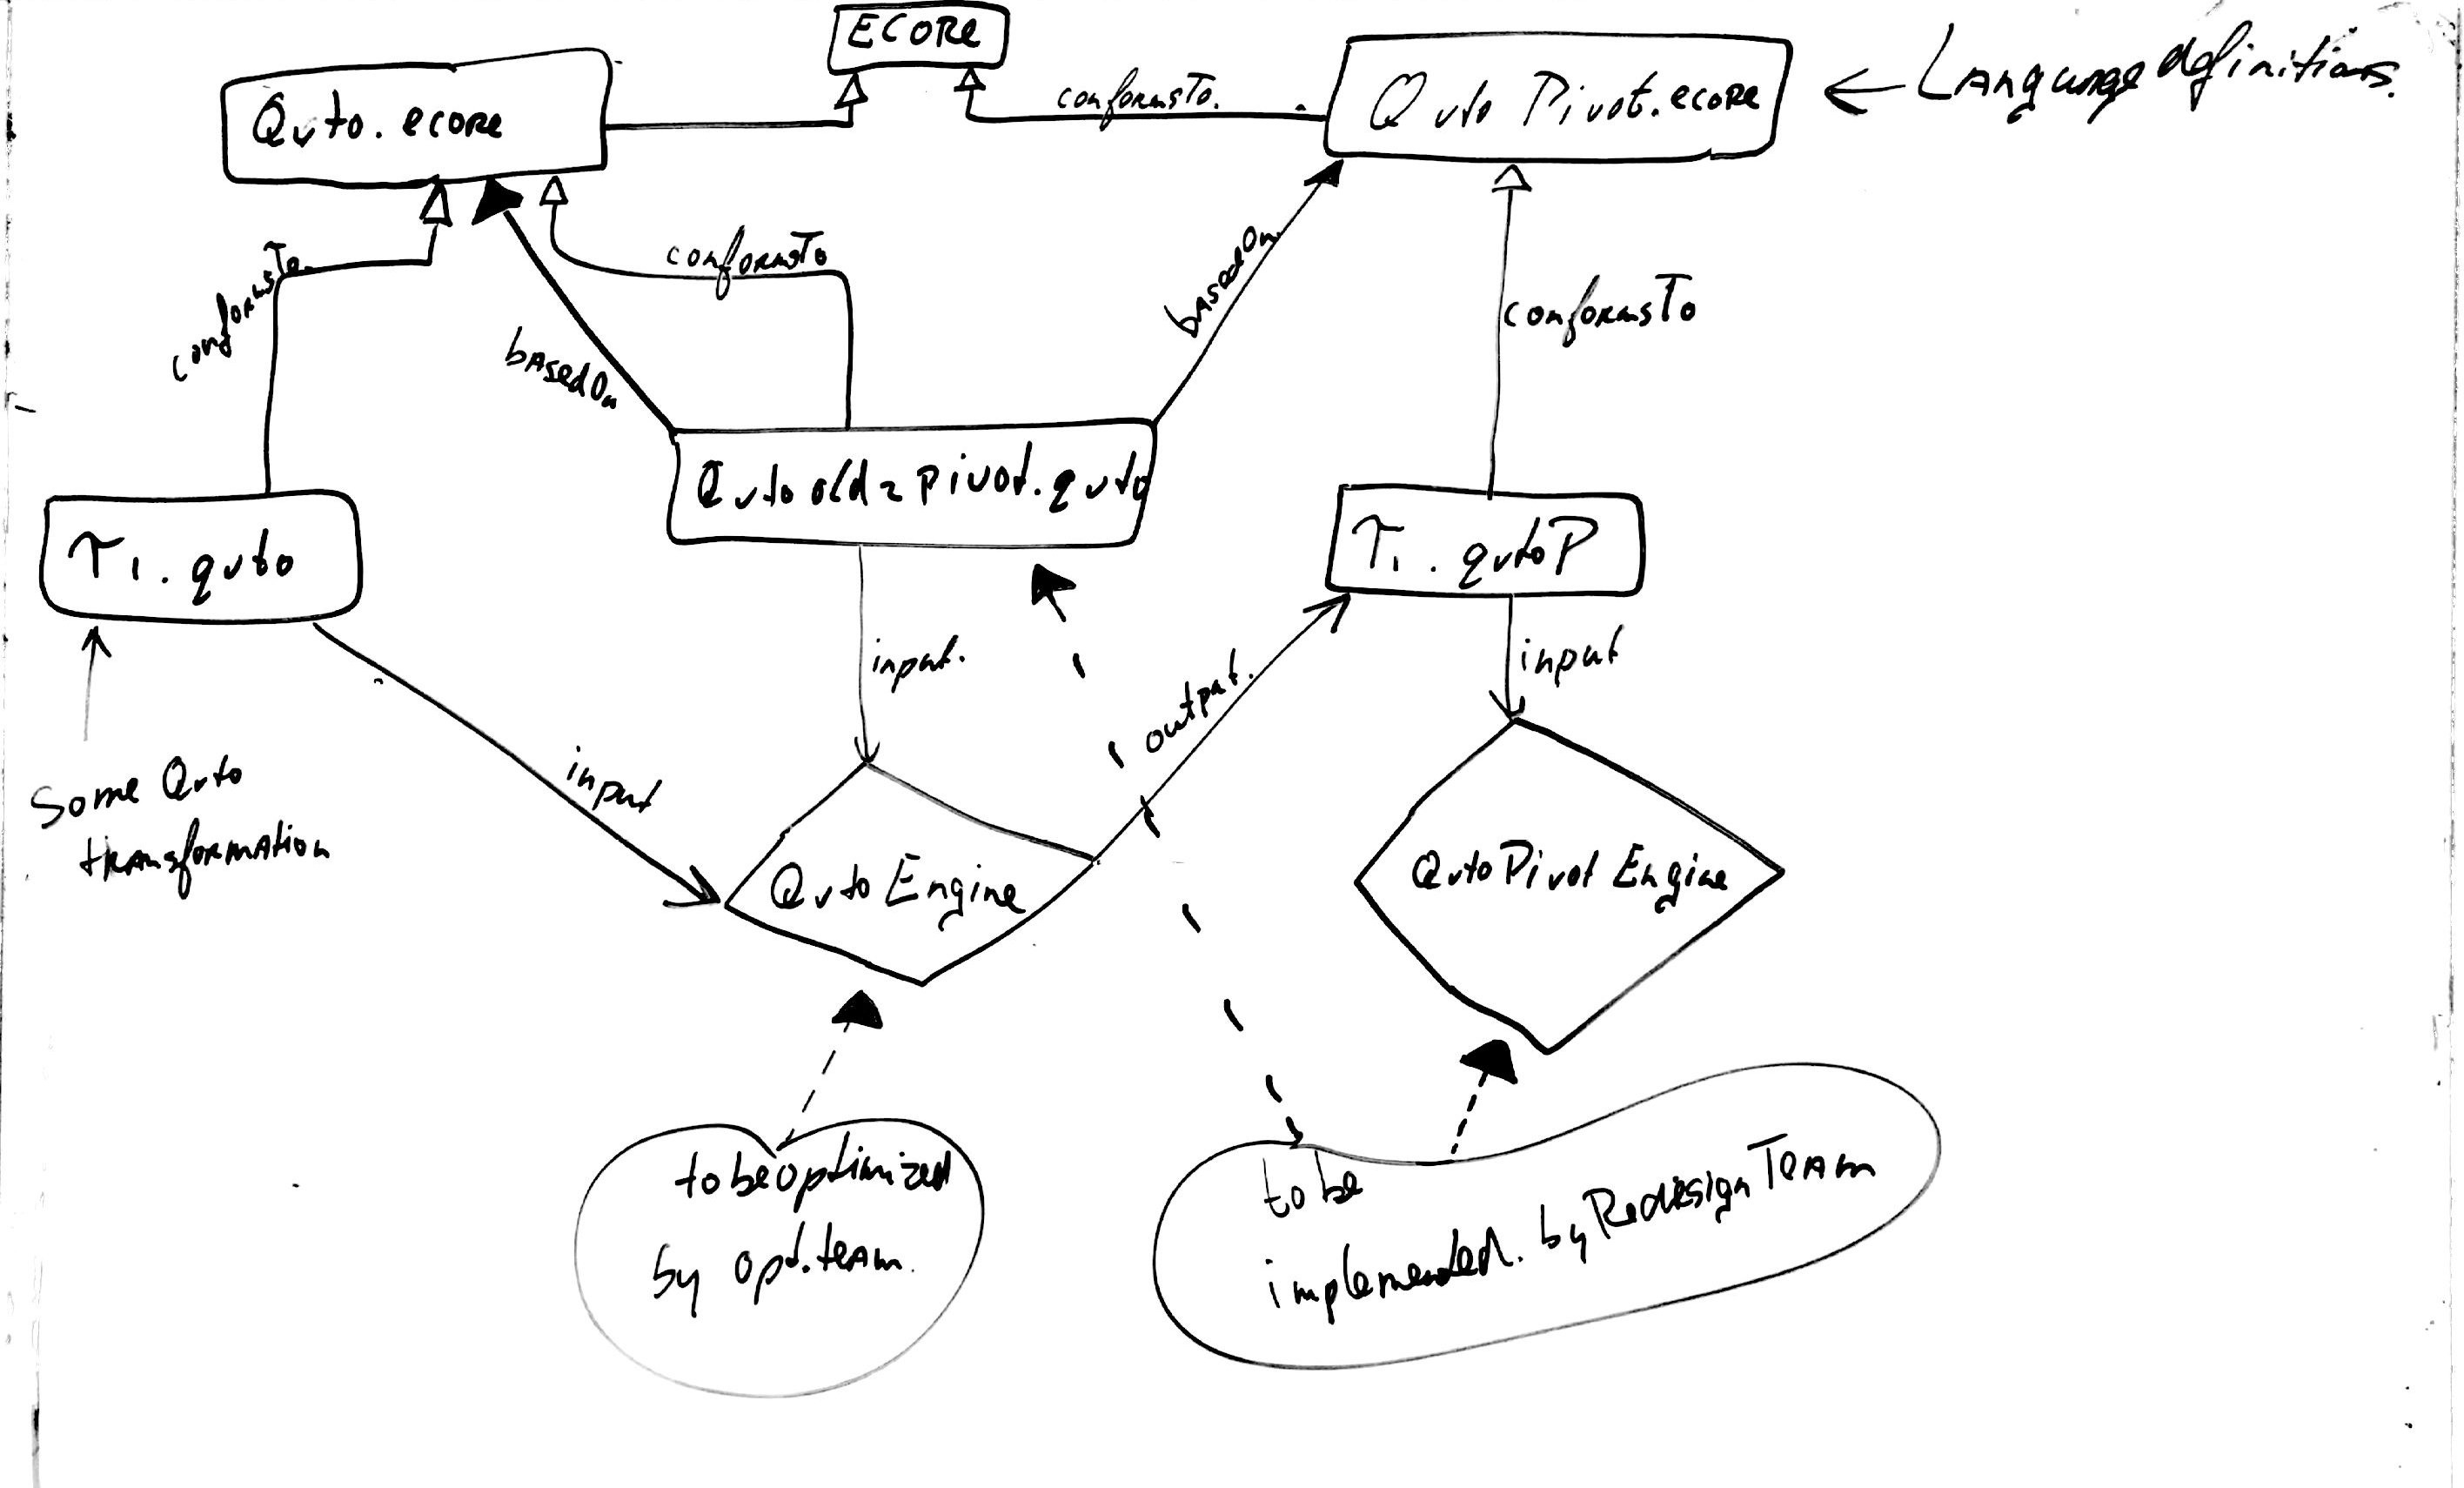 ECORE
Qvto.ecore
conformsTo.
Qvto Pivot.ecore
Language definitions.
conformsTo
conformsTo
basedOn
basedOn
conformsTo
Qvtoold2pivot.qvto
T1.qvto
T1.qvtoP
input.
output.
input
input
Some Qvto
transformation
Qvto Engine
QvtoPivot Engine
to be optimized
by opt.team.
to be
implemented. by Redesign Team